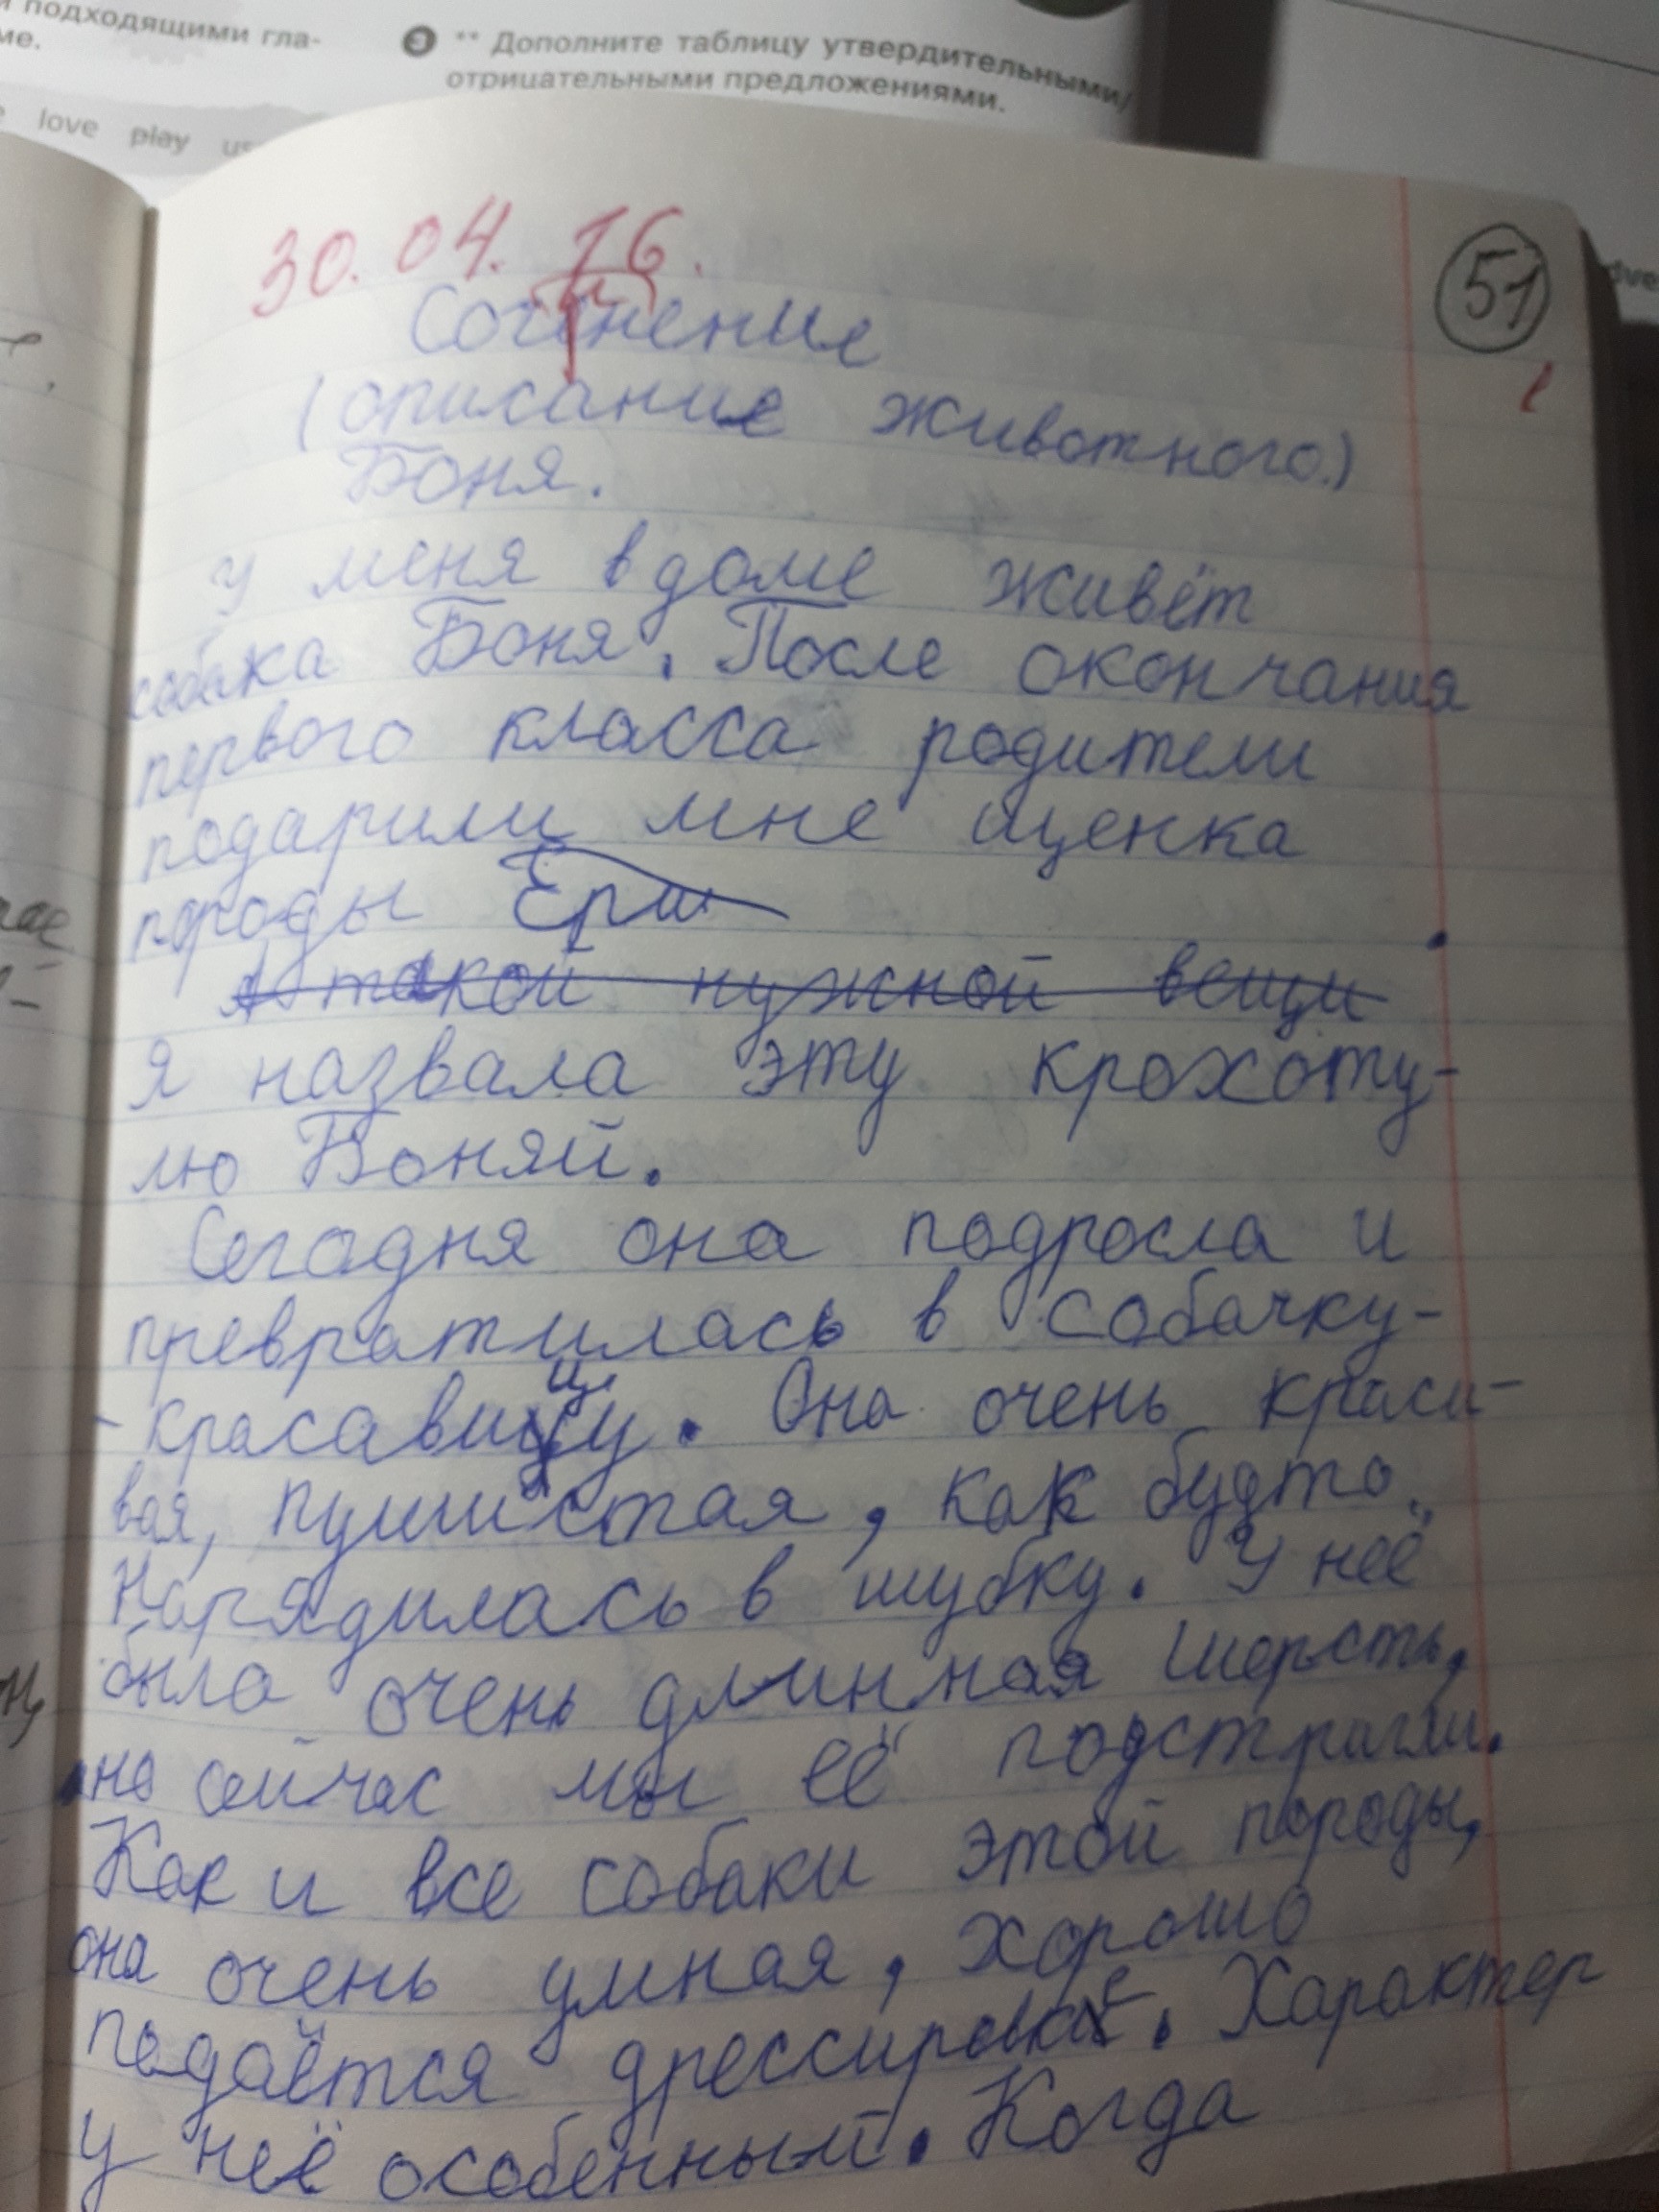 подходящими гла-
ме.
love play us
Э ** Дополните таблицу утвердительными/
отрицательными предложениями.
30.04.16.
51
Сочинение
(описание животного.)
Боня.
У меня в доме живёт
собака Боня. После окончания
первого класса родители
подарили мне щенка
породы Ёрш
А такой нужной вещи
Я назвала эту крохоту-
лю Боняй.
Сегодня она подросла и
превратилась в собачку-
-красавицу. Она очень краси-
вая, пушистая, как будто
нарядилась в шубку. У неё
была очень длинная шерсть,
но сейчас мы её подстригли.
Как и все собаки этой породы,
она очень умная, хорошо
подаётся дрессировке. Характер
у неё особенный. Когда